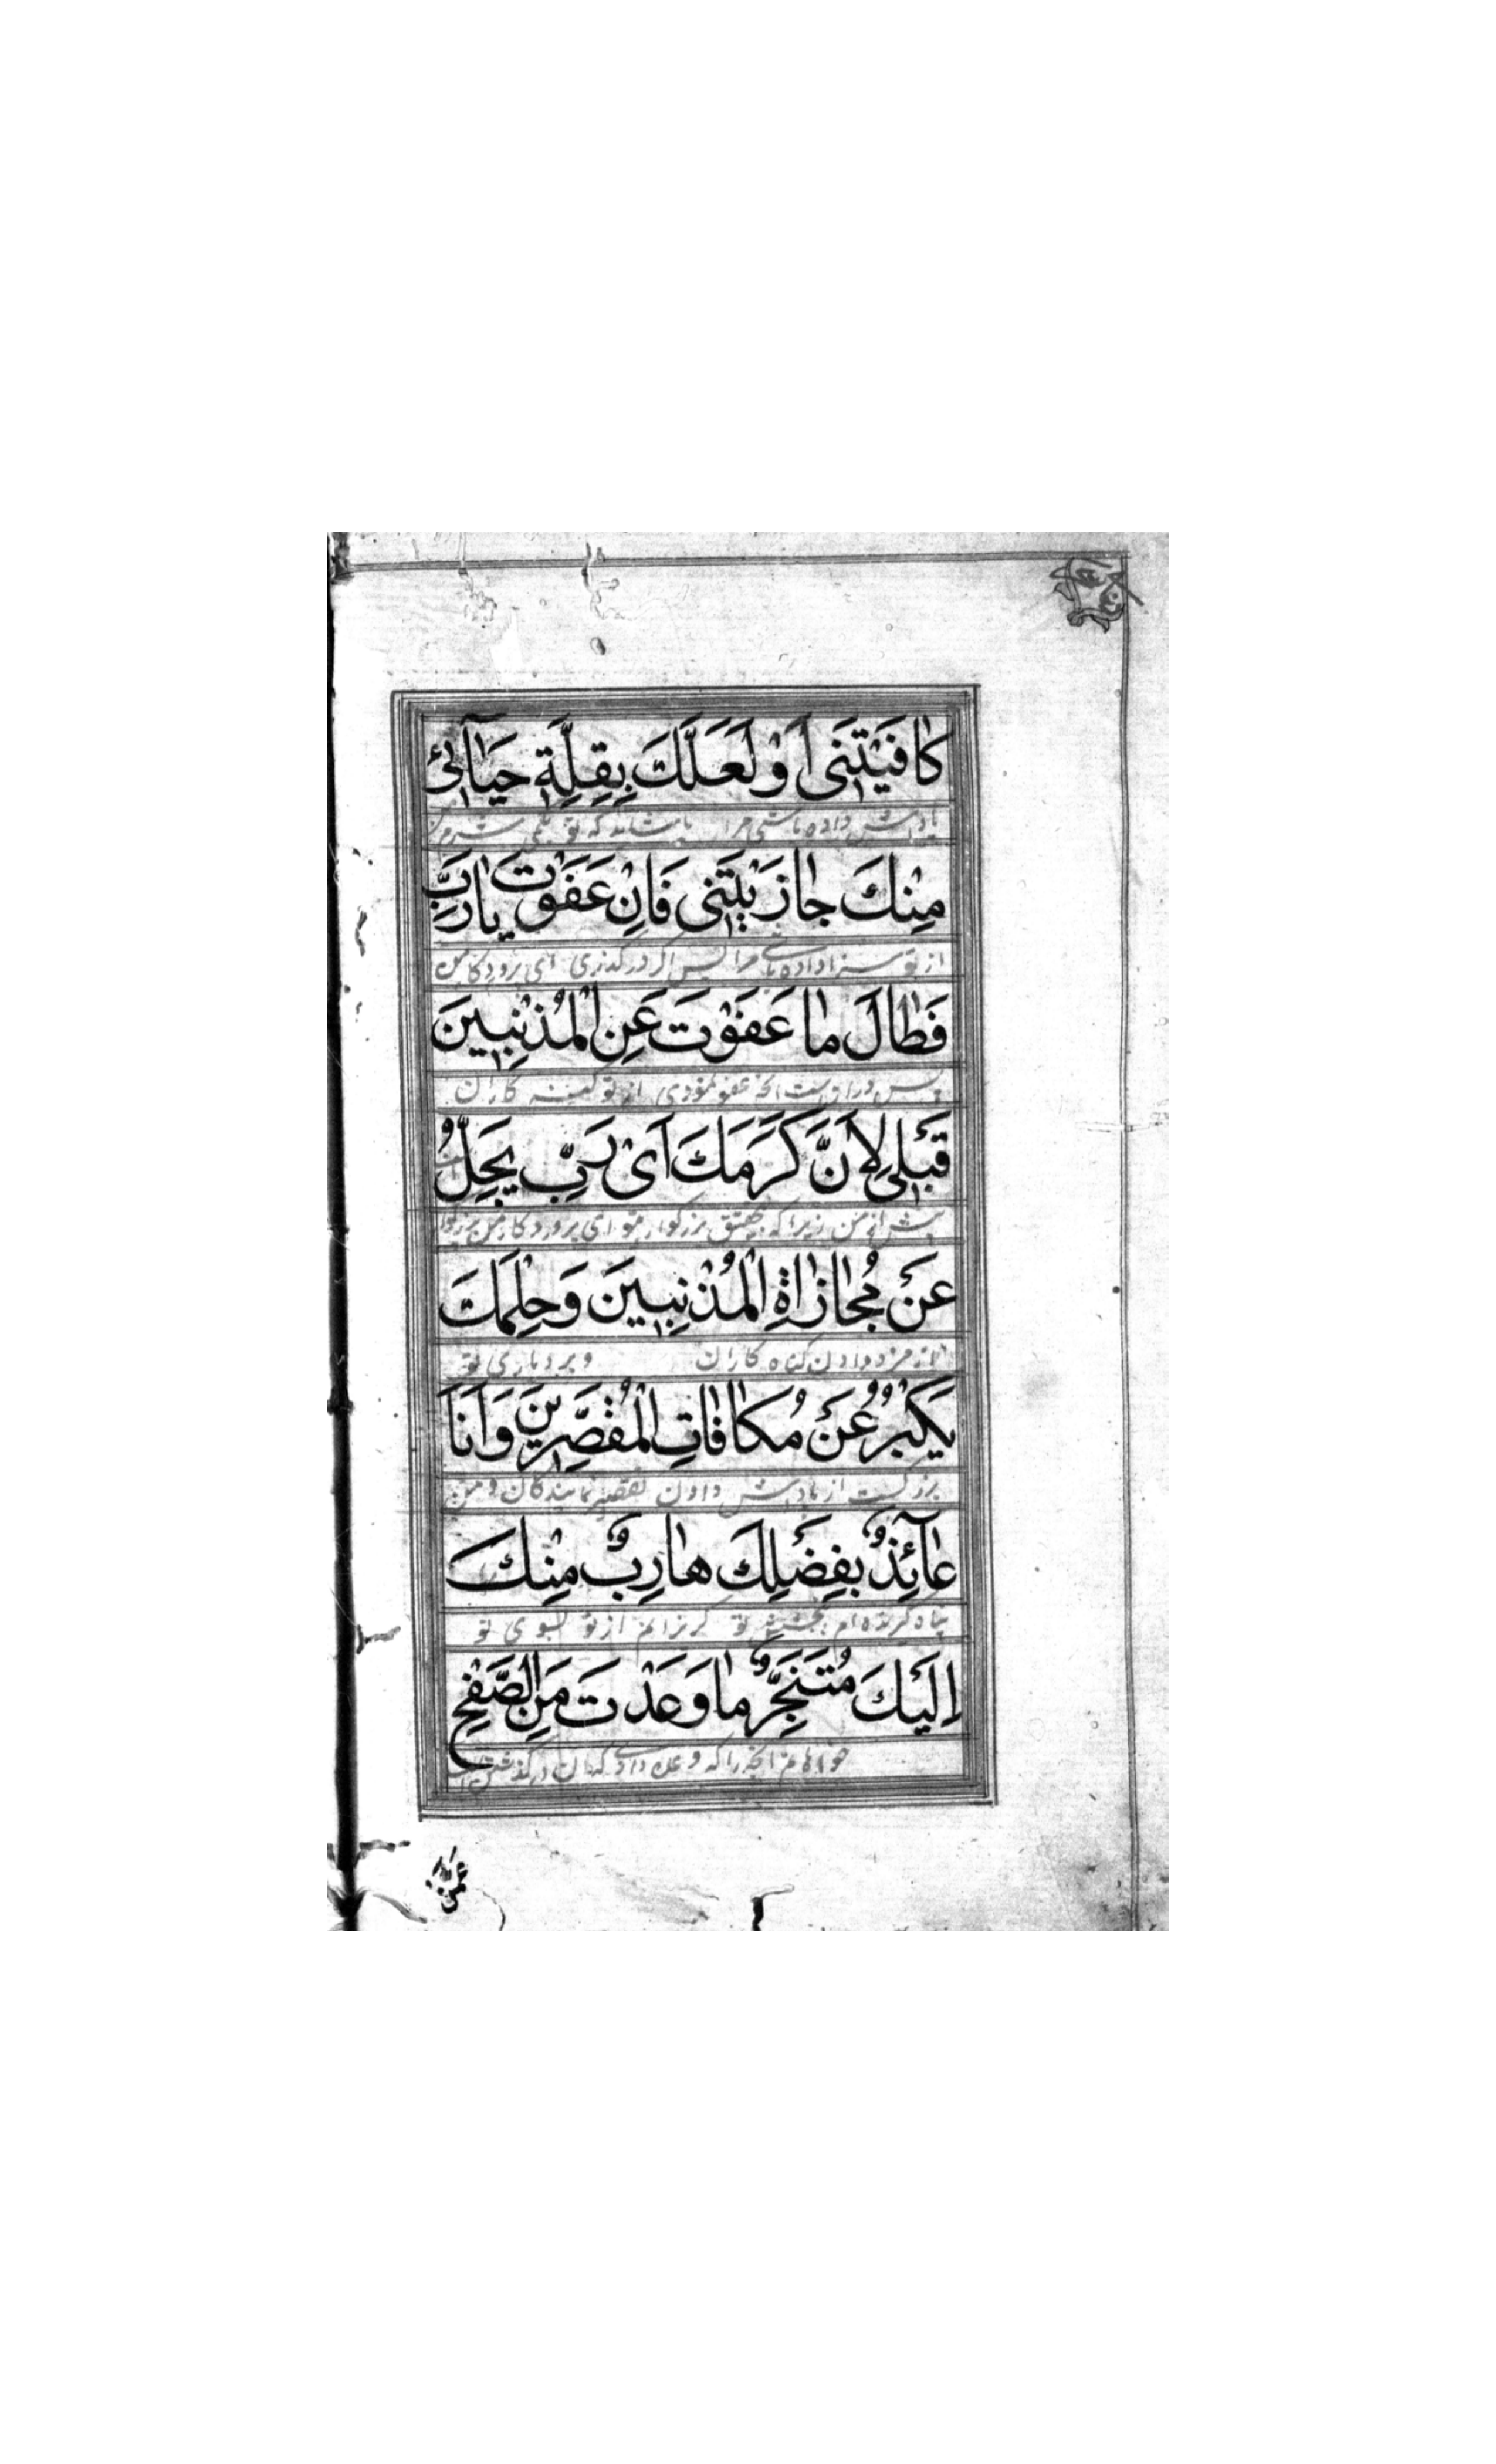 كٰافَيْتَنى اَوْ لَعَلَّكَ بِقِلَّةِ حَيٰآئى
پاداش داده باشی مرا یا شاید که تو بکمی شرم من
مِنْكَ جٰازَيْتَنى فَاِنْ عَفَوْتَ يٰارَبِّ
از تو سزا داده باشی مرا پس اگر درگذری ای پروردگار من
فَطٰالَ مٰا عَفَوْتَ عَنِ الْمُذْنِبينَ
پس دراز است آنچه عفو نمودی از تو کاران
قَبْلى لِاَنَّ كَرَمَكَ اَىْ رَبِّ يَجِلُّ
پیش از من زیرا که بزرگوار تو ای پروردگار من
عَنْ مُجٰازٰاةِ الْمُذْنِبينَ وَحِلْمَكَ
از مزد دادن گناه کاران و بردباری تو
يَكْبُرُ عَنْ مُكٰافٰاتِ الْمُقَصِّرينَ وَاَنَا
بزرگست از پاداش دادن تقصیر نمایندگان و من
عٰآئِذٌ بِفَضْلِكَ هٰارِبٌ مِنْكَ
پناه گیرنده‌ام تو گریزانم از تو بسوی تو
اِلَيْكَ مُتَنَجِّزٌ مٰا وَعَدْتَ مِنَ الصَّفْحِ
خواهانم آنچه را که وعده دادی که آن درگذشتن است
عمن